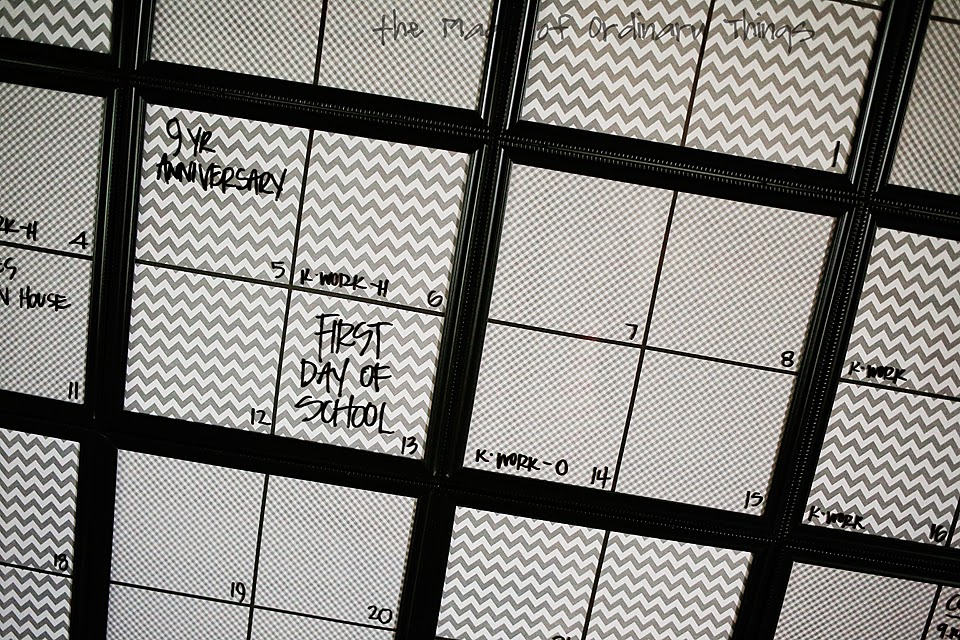 the of Ordinary Things
1
4
HOUSE
11
9 YR
ANNIVERSARY
5
K-WORK-H
6
12
FIRST
DAY OF
SCHOOL
13
7
8
K-WORK-O
14
15
K-WORK
K-WORK
16
18
19
20